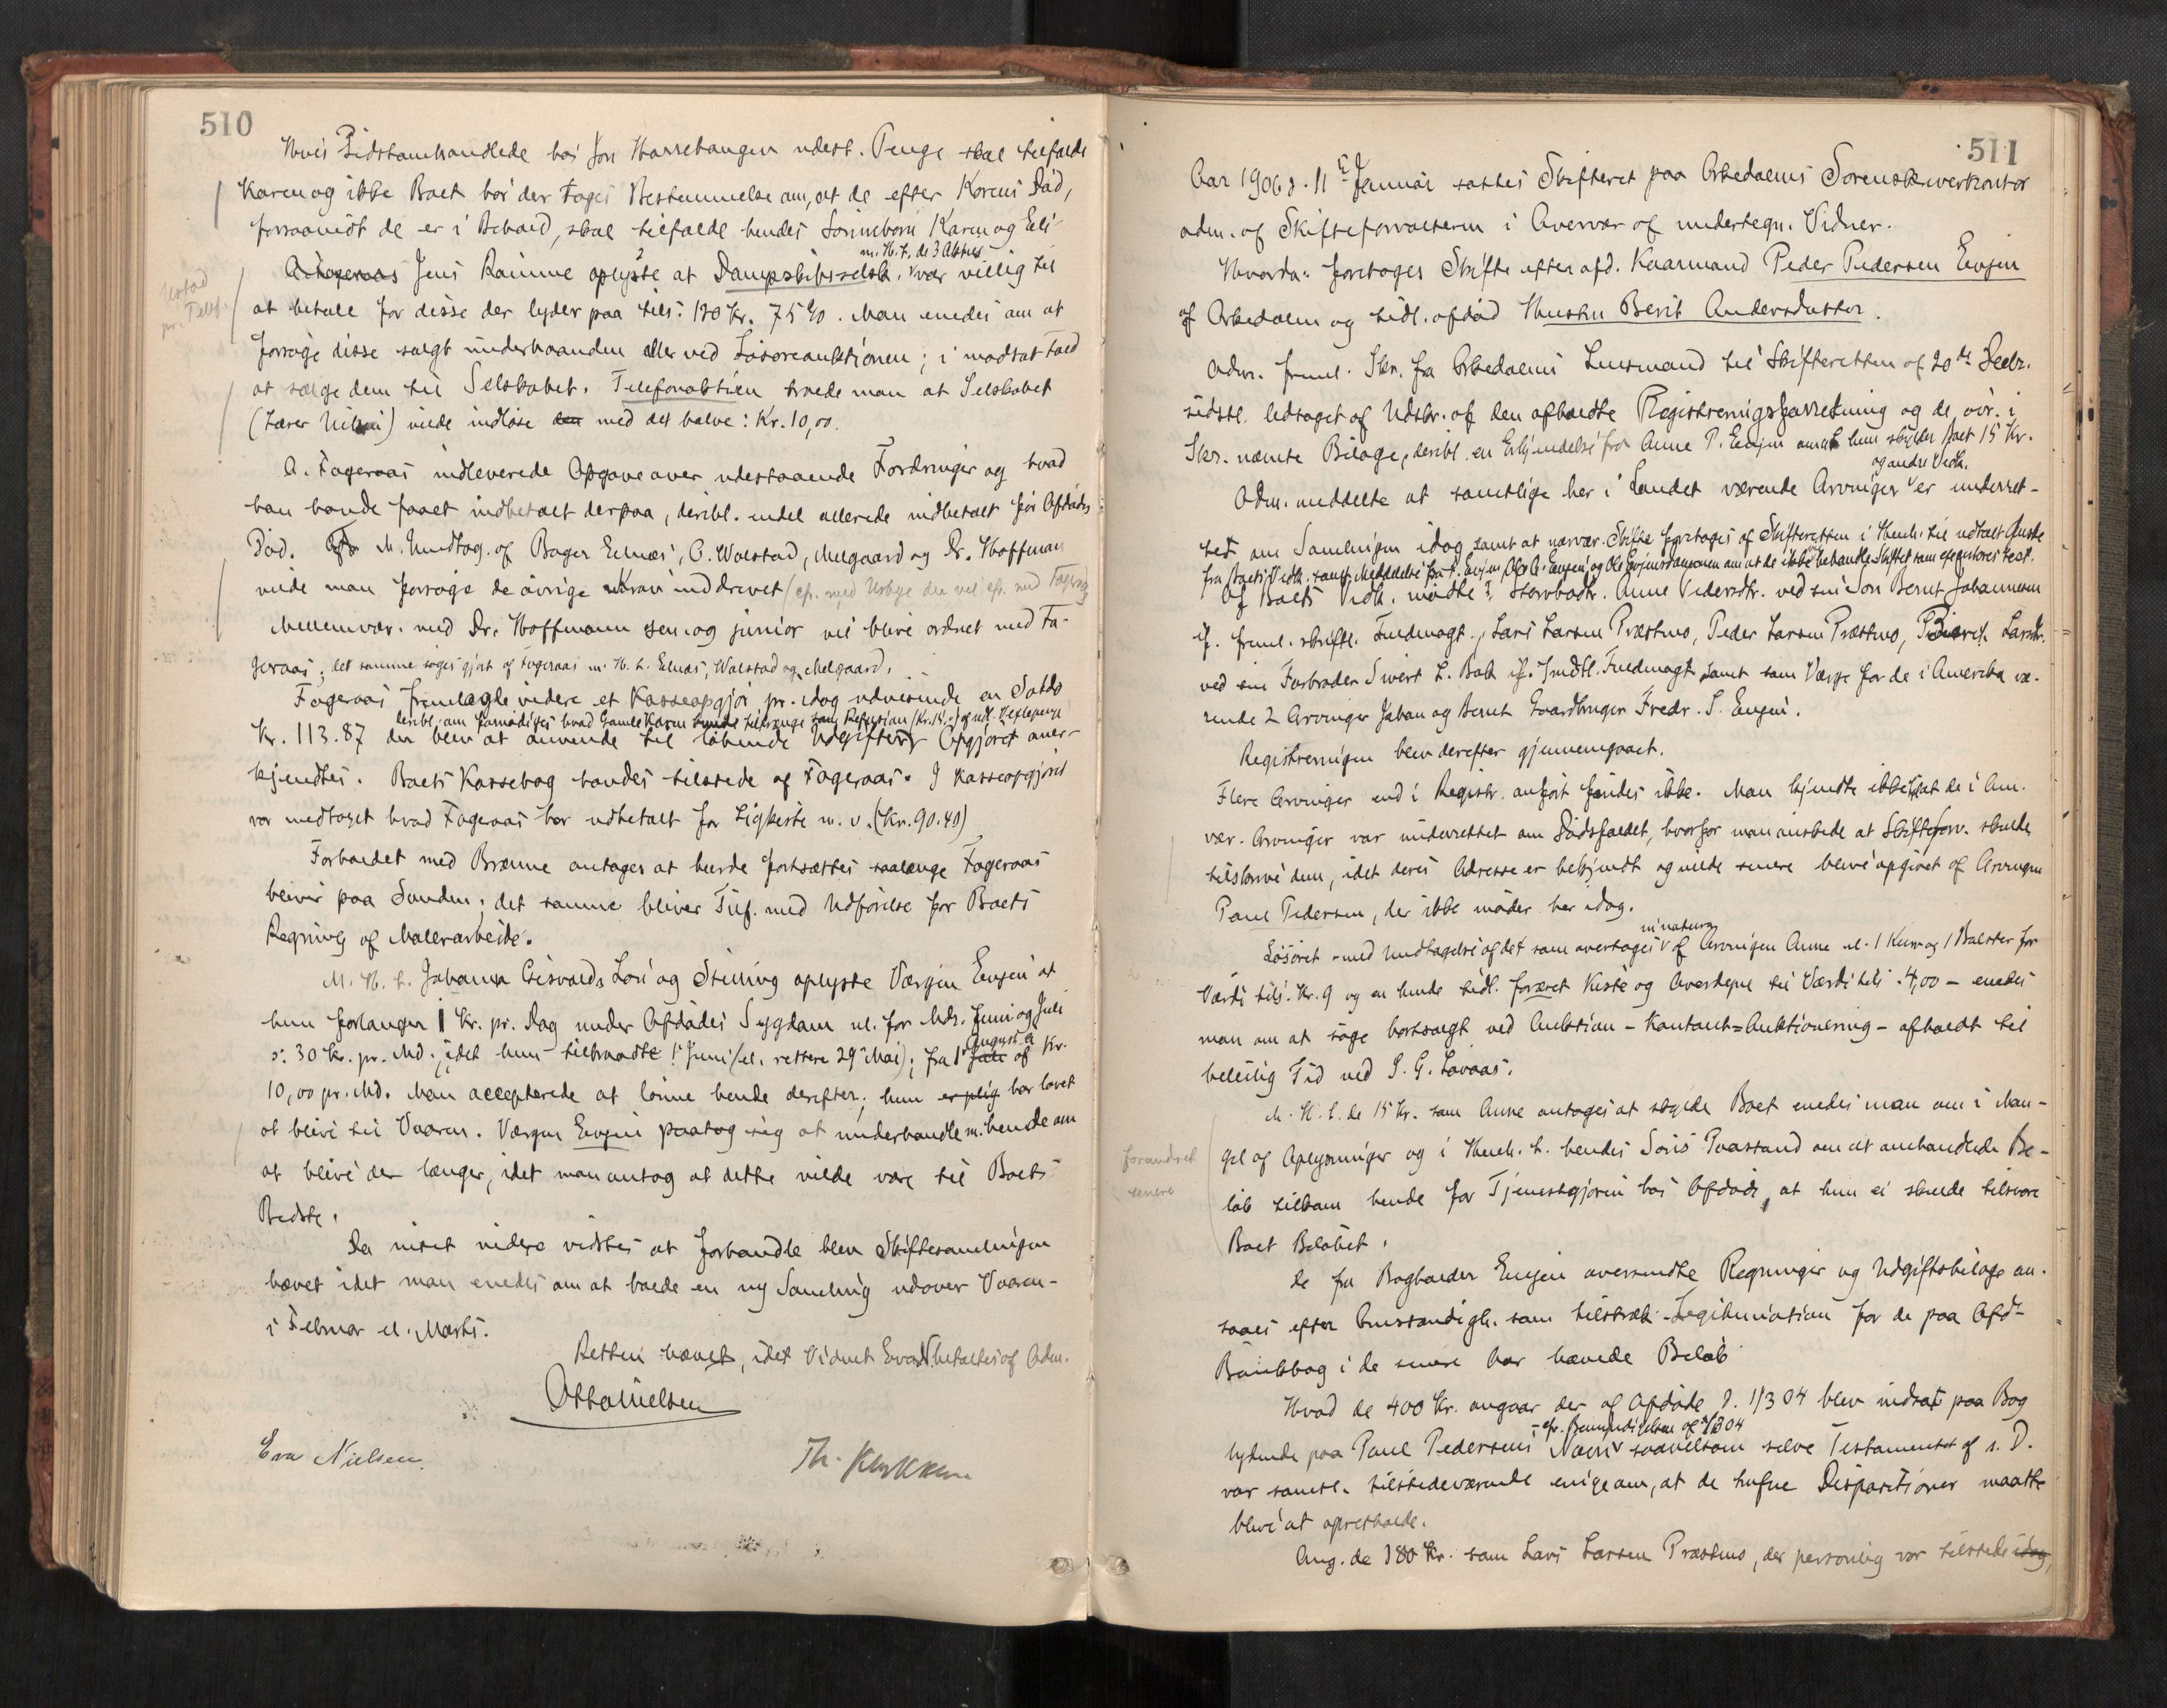 510
Hvis Sidstomhandlede hos Jon Harrebangen udest. Penge skal tilfalde
Karen og ikke Boet bör der tages Bestemmelse om, at de efter Karens Död,
forsaavidt de er i Behold, skal tilfalde hendes Sönnebörn Karen og Eli
m. H. t. de 3 Aktier
A. Fageraas Jens Ramme oplyste at Dampskibsselsk. var villig til
at betale for disse der lyder paa tils: 120 Kr. 75 %. Man enedes om at
forsöge disse solgt underhaanden eller ved Lösöreauktionen; i modsat Fald
at sælge dem til Selskabet. Telefonaktien troede man at Selskabet
(Lærer Nilsen) vilde indlöse den med det halve: Kr. 10,00.
A. Fageraas indleverede Opgave over udestaaende Fordringer og hvad
han havde faaet indbetalt derpaa, deribl. endel allerede indbetalt för Afdödes
Död. M. Undtag. af Bager Eknæs, O. Walstad, Melgaard og Dr. Hoffman
vilde man forsöge de övrige Krav inddrevet
Mellemvær. med Dr. Hoffmann sen. og junior vil blive ordnet med Fa-
geraas; det samme söges gjort af Fageraas m. H. t. Eknæs, Walstad og Melgaard.
Fageraas fremlagde videre et Kasseopgjör pr. idag udvisende en Saldo
Kr. 113.87 der blev at anvende til löbende Udgifter. Opgjöret aner-
kjendtes. Boets Kassebog havdes tilstede af Fageraas. I Kasseopgjöret
var medtaget hvad Fageraas har udbetalt for Ligkiste m. v. (Kr. 90.40)
Forholdet med Brænne antages at burde fortsættes saalænge Fageraas
bliver paa Sanden; det samme bliver Tilf. med Udförelse for Boets
Regning af Malerarbeide.
M. H. t. Johanna Lön og Stilling oplyste Værgen Evjen at
hun forlanger 1 Kr. pr. Dag under Afdödes Sygdom ɔ: for Mdr. Juni og Juli
ɔ: 30 Kr. pr. Md., idet hun tiltraadte 1' Juni (el. rettere 29' Mai); fra 1' August a Kr.
10,00 pr. Md. Man accepterede at lönne hende derefter; hun har lovet
at blive til Vaaren. Værgen Evjen paatog sig at underhandle m. hende om
at blive der længer, idet man antog at dette vilde være til Boets
Bedste.
Da intet videre vidstes at forhandle blev Skiftesamlingen
hævet idet man enedes om at holde en ny Samling udover Vaaren-
i Februar el. Marts.
Retten hævet, idet Vidnet Eva N. betaltes af Adm.
Otto Nielsen
Eva Nielsen.
Th. Klykken
511
Aar 1906 d. 11te Januar sattes Skifteret paa Orkedalens Sorenskriverkontor
adm. af Skifteforvalteren i Overvær af undertegn. Vidner.
Hvorda: foretoges Skifte efter afd. Kaarmand Peder Pedersen Evjen
af Orkedalen og tidl. afdöd Hustru Berit Andersdatter.
Adm. freml. Skr. fra Orkedalens Lensmand til Skifteretten af 20de Decbr.
sidstl. ledsaget af Udskr. af den afholdte Registreringsforretning og de övr. i
Skr. nævnte Bilage, deribl. en Erkjendelse fra Anne P. Evjen om at hun skylder Boet 15 Kr.
og andre Vedk.
Adm. meddelte at samtlige her i Landet værende Arvinger er underret-
tet om Samlingen idag samt at nærvær. Skifte foretages af Skifteretten i Henh. til udtalt Önske
fra Boets Vedk. samt Meddelelse fra om at de ikke behandle Skiftet som exekutores test.
Af Boets Vedk. mödte: Stervbodtr. Anne Pedersdtr. ved sin Sön Bernt Johannesen
if. freml. skriftl. Fuldmagt, Lars Larsen Præstmo, Peder Larsen Præstmo, Larsdtr.
ved sin Farbroder Sivert L. Bak if. Fuldmagt samt som Værge for de i Amerika væ-
rende 2 Arvinger Johan og Bernt Gaardbruger Fredr. S. Evjen.
Registreringen blev derefter gjennemgaaet.
Flere Arvinger end i Registr. anfört findes ikke. Man kjendte ikke til at de i Am.
vær. Arvinger var underrettet om Dödsfaldet, hvorfor man önskede at Skifteforv. skulde
tilskrive dem, idet deres Adresse er bekjendt og vilde senere blive opgivet af Arvingen
Paul Pedersen, der ikke möder her idag.
in natura
Lösöret - med Undtagelse af det som overtages af Arvingen Anne nl. 1 Kum og 1 Bolster for
Værdi tils. Kr. 9 og en hende tidl. foræret Kiste og Overdyne til Værdi tils. 4,00 - enedes
man om at söge bortsolgt ved Auktion - Kontant-Auktionering - afholdt til
beleilig Tid ved S. G. Lovaas.
M. H. t. de 15 Kr. som Anne antages at skylde Boet enedes man om i Man-
forandret
senere
gel af Oplysninger og i Henh. t. hendes Söns Paastand om at omhandlede Be-
löb tilkom hende for Tjenestgjören hos Afdöde, at hun ei skulde tilsvare
Boet Belöbet.
De fra Bogholder Evjen oversendte Regninger og Udgiftsbilage an-
saaes efter Omstændigh. som tilstræk. Legitimation for de paa Afd.
Bankbog i de senere Aar hævede Belöb
Hvad de 400 Kr. angaar der af Afdöde d. 1/3 04 blev indsat paa Bog
lydende paa Paul Pedersens Navn saavelsom selve Testamentet af s. D.
var samtl. tilstedeværende enige om, at de trufne Dispositioner maatte
blive at opretholde.
Ang. de 180 Kr. som Lars Larsen Præstmo, der personlig var tilstede idag,